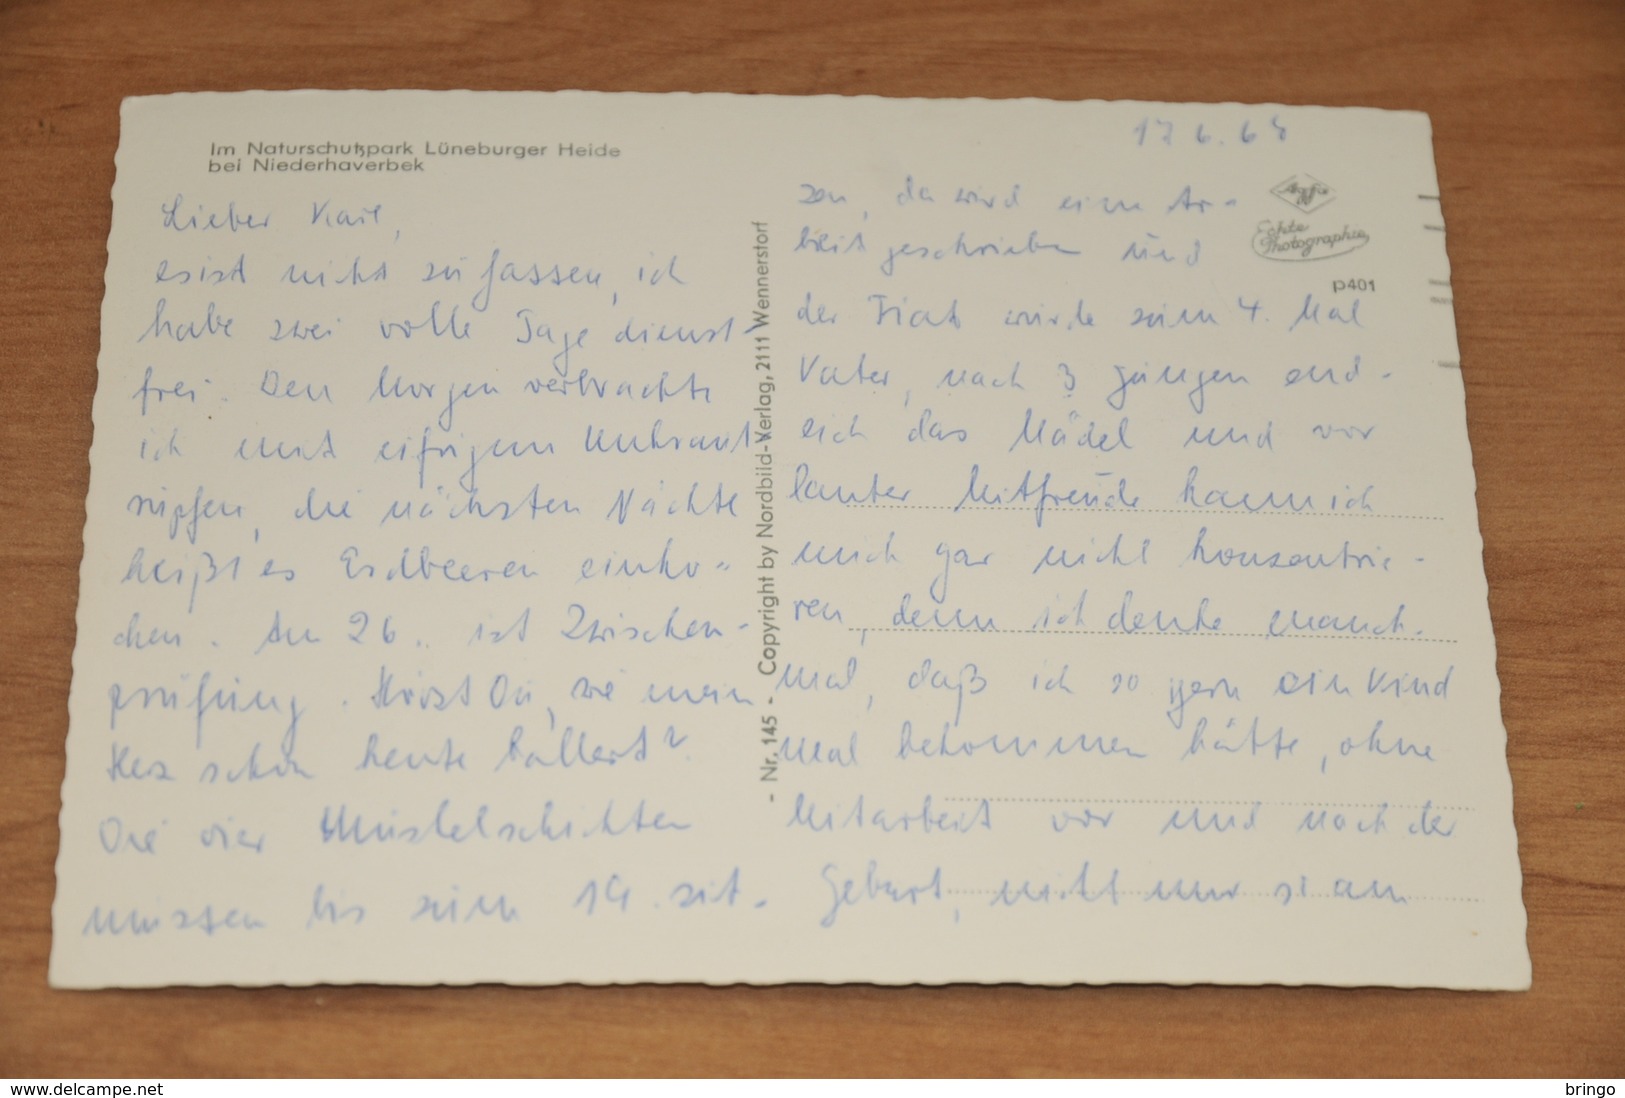 Im Naturschutzpark Lüneburger Heide
bei Niederhaverbek
Lieber Karl,
es ist nicht zu fassen, ich
habe zwei volle Tage dienst-
frei. Den Morgen verbrachte
ich mit eifrigem Unkraut
rupfen, die nächsten Nächte
heißt es Erdbeeren einko-
chen. Am 26. ist Zwischen-
prüfung. Hörst Du, wie mein
Herz schon heute ballert?
Die vier Muskelschichten
müssen bis zum 19. sit-
17.6.68
zen, da wird eine Ar-
beit geschrieben und
der wurde zum 4. Mal
Vater, nach 3 Jungen end-
lich das Mädel und vor
lauter Mitfreude kann ich
mich gar nicht konzentrie-
ren, denn ich denke manch-
mal, daß ich so gern ein Kind
mal bekommen hätte, ohne
Mitarbeit vor und nach der
Geburt, nicht nur
Agfa
Echte
Photographie
P401
- Nr. 145 - Copyright by Nordbild-Verlag, 2111 Wennerstorf
www.delcampe.net
bringo